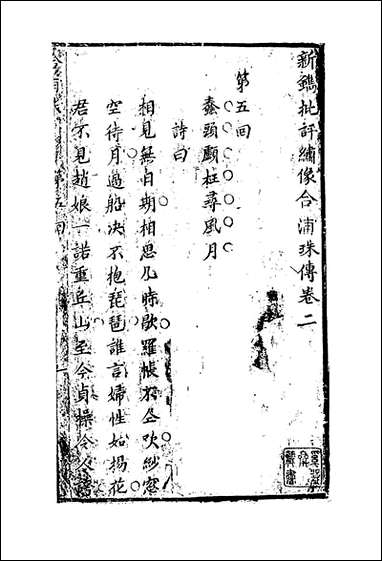 新鐫批評繡像合浦珠傳卷二
第五回
蠢頭顱枉尋風月
詩曰
相見無由期相思几時歇羅帳不全吹紗窓
空待月過船决不抱琵琶誰言婦性如楊花
君不見趙娘一諾重丘山至今貞操令人